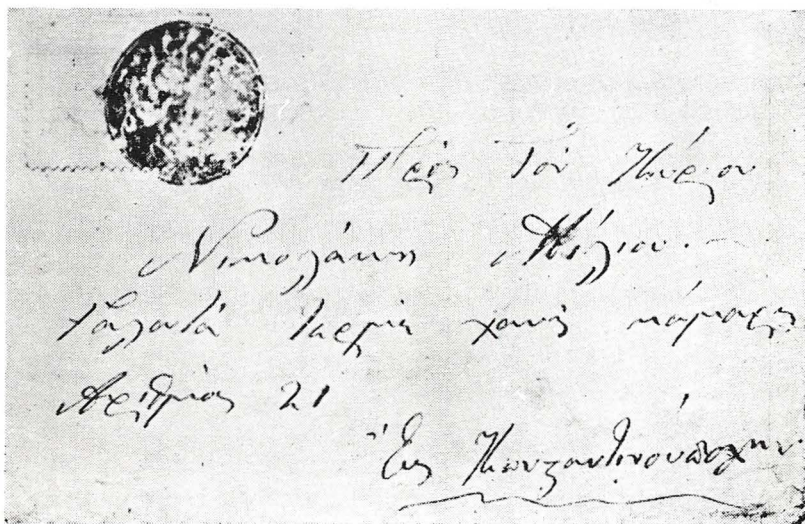 Πρὸς Τὸν Κύριον
Νικολάκη
Γαλατά χανὶ
Αριθμὸς 21
Εἰς Κωνσαντινούπολην